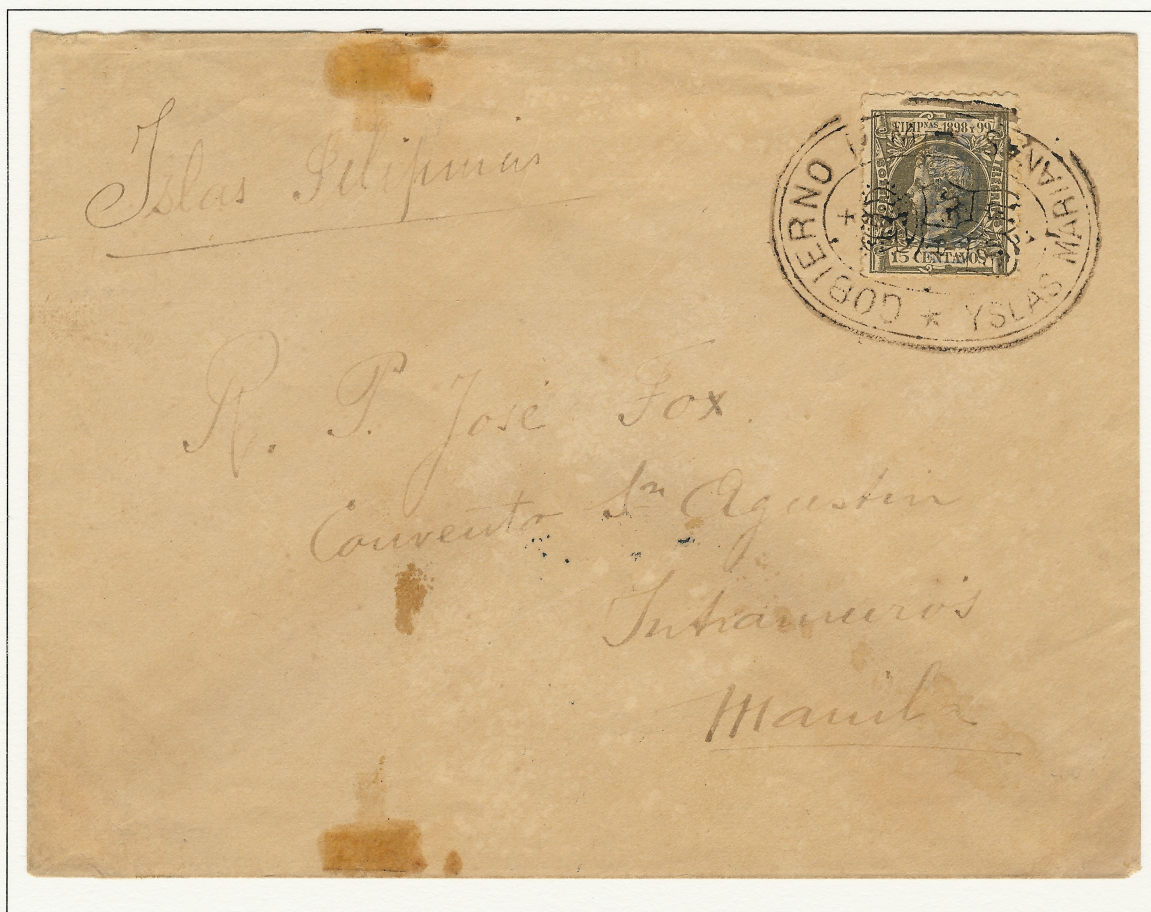 Islas Filipinas
FILIPNAS 1898 Y 99
15 CENTAVOS
GOBIERNO
YSLAS MARIANAS
R. P. José Fox.
Convento Sn Agustin
Intramuros
Manila